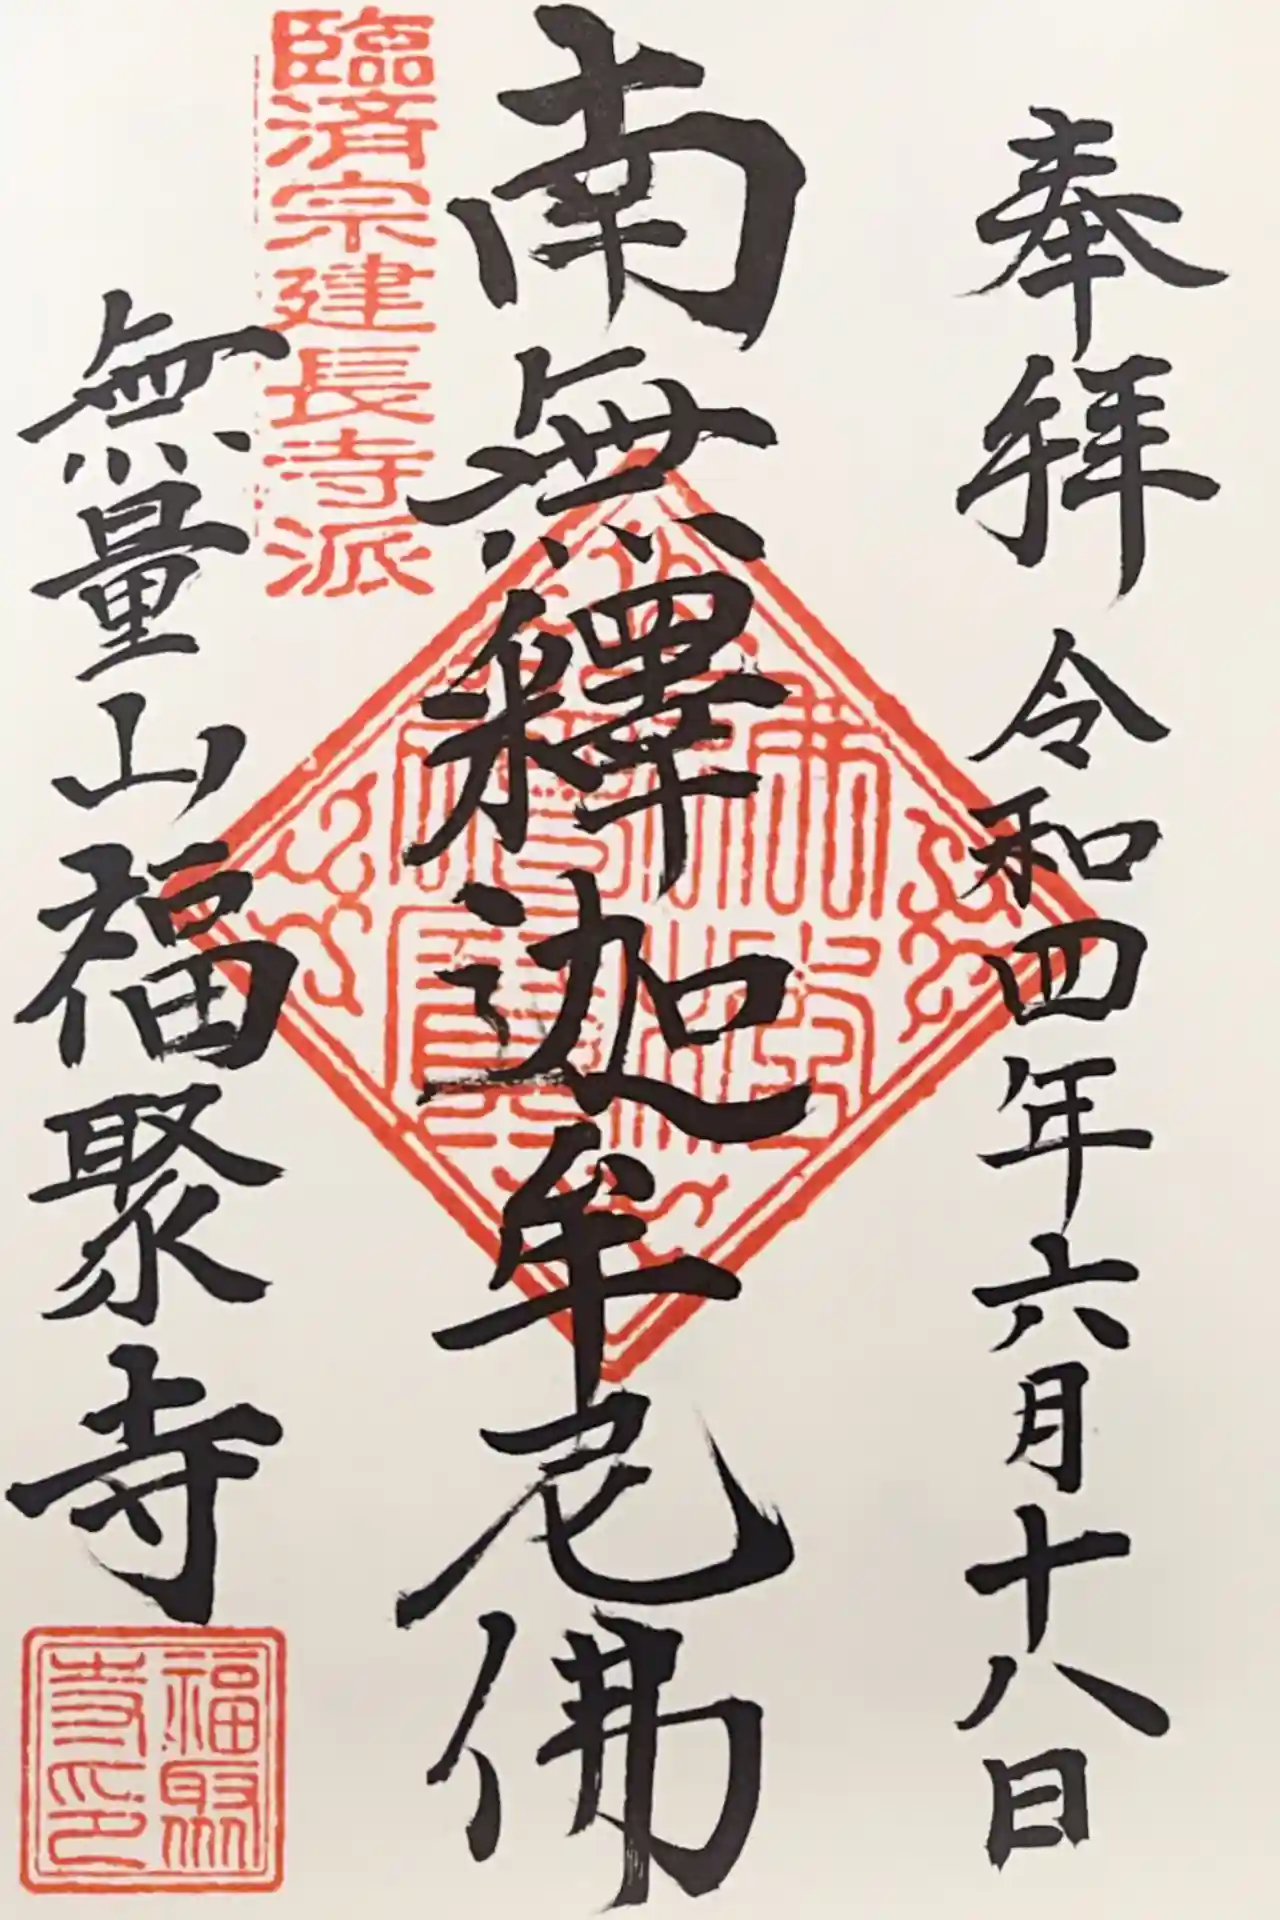 奉拜 令和四年六月十八日
南無釋迦牟尼佛
臨済宗建長寺派
無量山福聚寺
佛法僧寶
福聚寺印